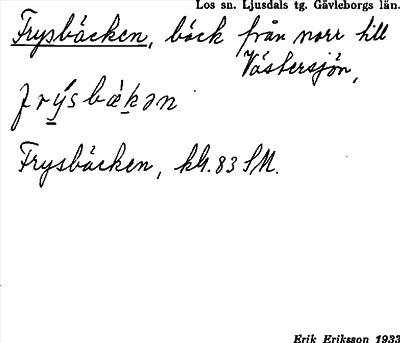 Los sn. Ljusdals tg. Gävleborgs län.
Frysbäcken, bäck från norr till
Västersjön,
Frysbäcken, kbl. 83 SM.
Erik Eriksson 1933